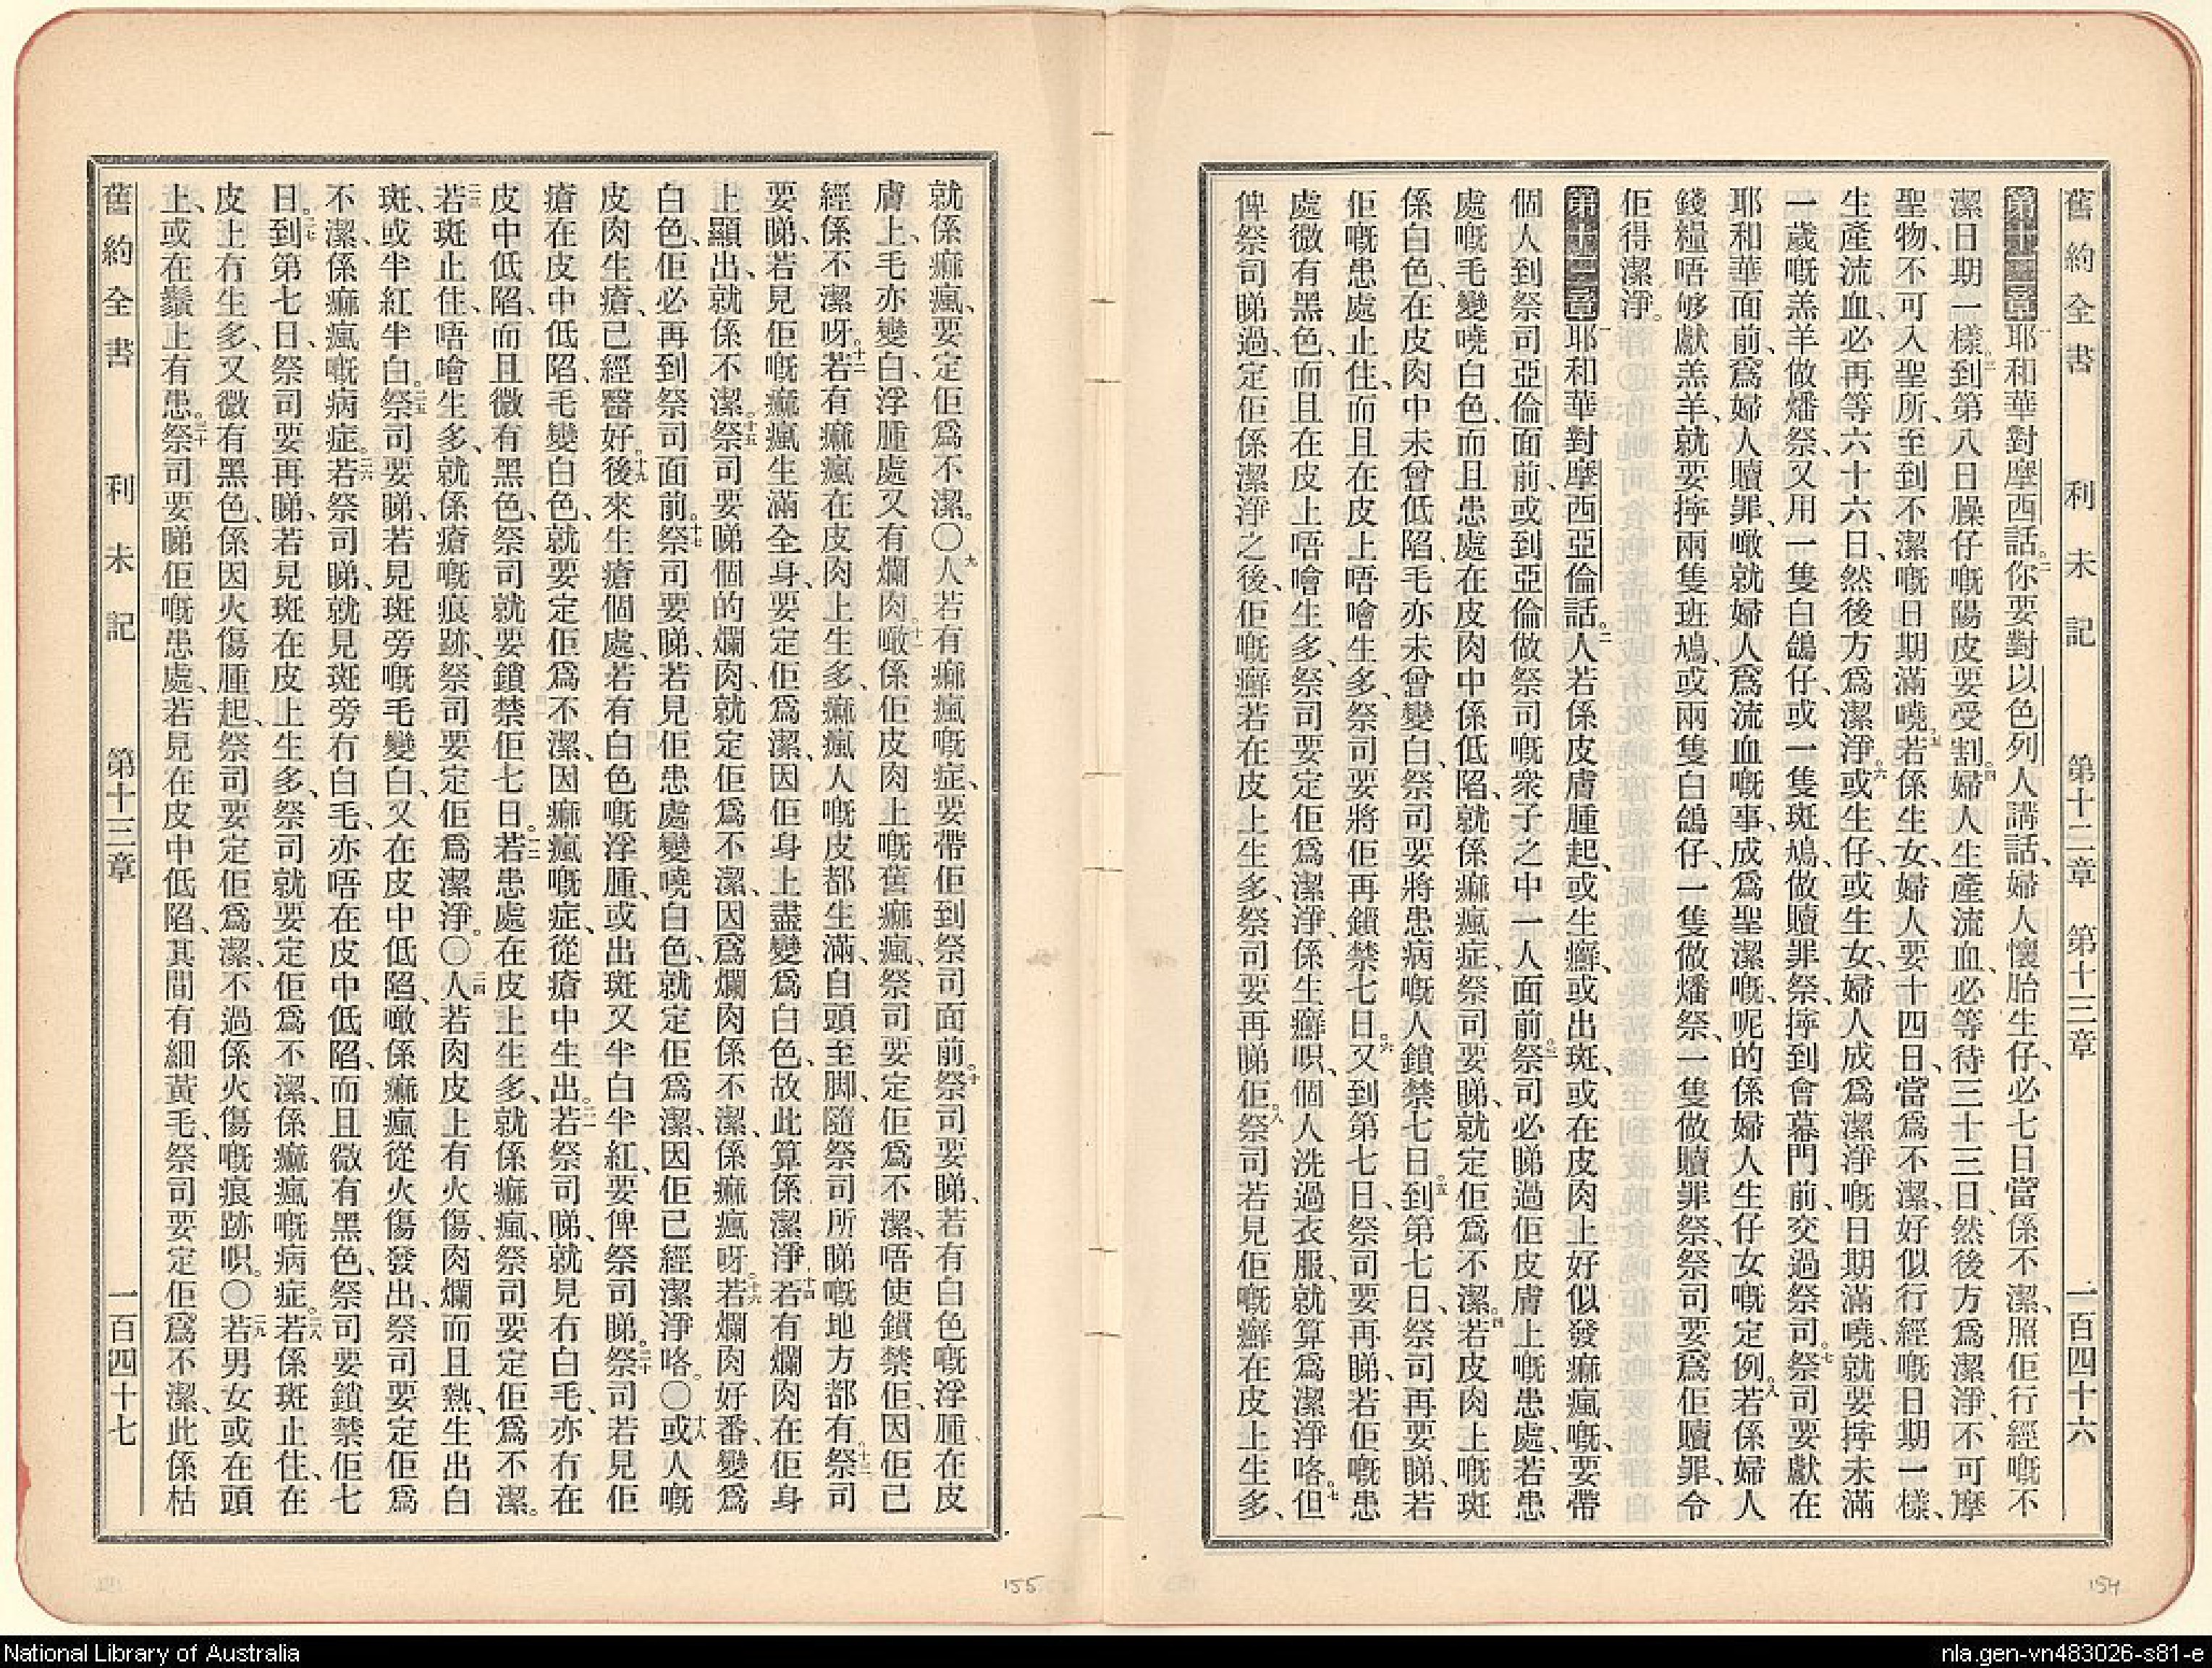 舊約全書　利未記　第十二章　第十三章　一百四十六
第十二章一耶和華對摩西話。二你要對以色列人講話、婦人懷胎生仔、必七日當係不潔、照佢行經嘅不
潔日期一樣。三到第八日臊仔嘅陽皮要受割。四婦人生產流血、必等待三十三日、然後方爲潔淨、不可摩
聖物、不可入聖所、至到不潔嘅日期滿曉。五若係生女、婦人要十四日、當爲不潔、好似行經嘅日期一樣、
生產流血、必再等六十六日、然後方爲潔淨。六或生仔、或生女、婦人成爲潔淨嘅日期滿曉、就要擰未滿
一歲嘅羔羊做燔祭、又用一隻白鴿仔、或一隻斑鳩、做贖罪祭、擰到會幕門前、交過祭司。七祭司要獻在
耶和華面前、爲婦人贖罪、噉就婦人爲流血嘅事、成爲聖潔嘅、呢的係婦人生仔女嘅定例。八若係婦人
錢糧唔够獻羔羊、就要擰兩隻班鳩、或兩隻白鴿仔、一隻做燔祭、一隻做贖罪祭、祭司要爲佢贖罪、令
佢得潔淨。
第十三章一耶和華對摩西亞倫話。二人若係皮膚腫起、或生癬、或出斑、或在皮肉上好似發痲瘋嘅、要帶
個人到祭司亞倫面前、或到亞倫做祭司嘅衆子之中一人面前。三祭司必睇過佢皮膚上嘅患處、若患
處嘅毛變曉白色、而且患處在皮肉中係低陷、就係痲瘋症、祭司要睇、就定佢爲不潔。四若皮肉上嘅斑
係白色、在皮肉中未曾低陷、毛亦未曾變白、祭司要將患病嘅人鎖禁七日。五到第七日、祭司再要睇、若
佢嘅患處止住、而且在皮上唔噲生多、祭司要將佢再鎖禁七日。六又到第七日、祭司要再睇、若佢嘅患
處微有黑色、而且在皮上唔噲生多、祭司要定佢爲潔淨、係生癬呮、個人洗過衣服、就算爲潔淨咯。七但
俾祭司睇過、定佢係潔淨之後、佢嘅癬若在皮上生多、祭司要再睇佢。八祭司若見佢嘅癬在皮上生多、
就係痲瘋、要定佢爲不潔。〇九人若有痲瘋嘅症、要帶佢到祭司面前。十祭司要睇、若有白色嘅浮腫在皮
膚上、毛亦變白、浮腫處又有爛肉。十一噉係佢皮肉上嘅舊痲瘋、祭司要定佢爲不潔、唔使鎖禁佢、因佢已
經係不潔呀。十二若有痲瘋在皮肉上生多、痲瘋人嘅皮都生滿、自頭至脚、隨祭司所睇嘅地方都有。十三祭司
要睇、若見佢嘅痲瘋生滿全身、要定佢爲潔、因佢身上盡變爲白色、故此算係潔淨。十四若有爛肉在佢身
上顯出、就係不潔。十五祭司要睇個的爛肉、就定佢爲不潔、因爲爛肉係不潔、係痲瘋呀。十六若爛肉好番、變爲
白色、佢必再到祭司面前。十七祭司要睇、若見佢患處變曉白色、就定佢爲潔、因佢已經潔淨咯。〇十八或人嘅
皮肉生瘡、已經醫好。十九後來生瘡個處、若有白色嘅浮腫、或出斑又半白半紅、要俾祭司睇。二十祭司若見佢
瘡在皮中低陷、毛變白色、就要定佢爲不潔、因痲瘋嘅症、從瘡中生出。二一若祭司睇、就見冇白毛、亦冇在
皮中低陷、而且微有黑色、祭司就要鎖禁佢七日。二二若患處在皮上生多、就係痲瘋、祭司要定佢爲不潔。
二三若斑止住、唔噲生多、就係瘡嘅痕跡、祭司要定佢爲潔淨。〇二四人若肉皮上有火傷、肉爛而且熱、生出白
斑、或半紅半白。二五祭司要睇、若見斑旁嘅毛變白、又在皮中低陷、噉係痲瘋從火傷發出、祭司要定佢爲
不潔、係痲瘋嘅病症。二六若祭司睇、就見斑旁冇白毛、亦唔在皮中低陷、而且微有黑色、祭司要鎖禁佢七
日。二七到第七日、祭司要再睇、若見斑在皮上生多、祭司就要定佢爲不潔、係痲瘋嘅病症。二八若係斑止住、在
皮上冇生多、又微有黑色、係因火傷腫起、祭司要定佢爲潔、不過係火傷嘅痕跡呮。〇二九若男女或在頭
上、或在鬚上有患。三十祭司要睇佢嘅患處、若見在皮中低陷、其間有細黃毛、祭司要定佢爲不潔、此係枯
舊約全書　利未記　第十三章　一百四十七
154
155
National Library of Australia
nla.gen-vn483026-s81-e